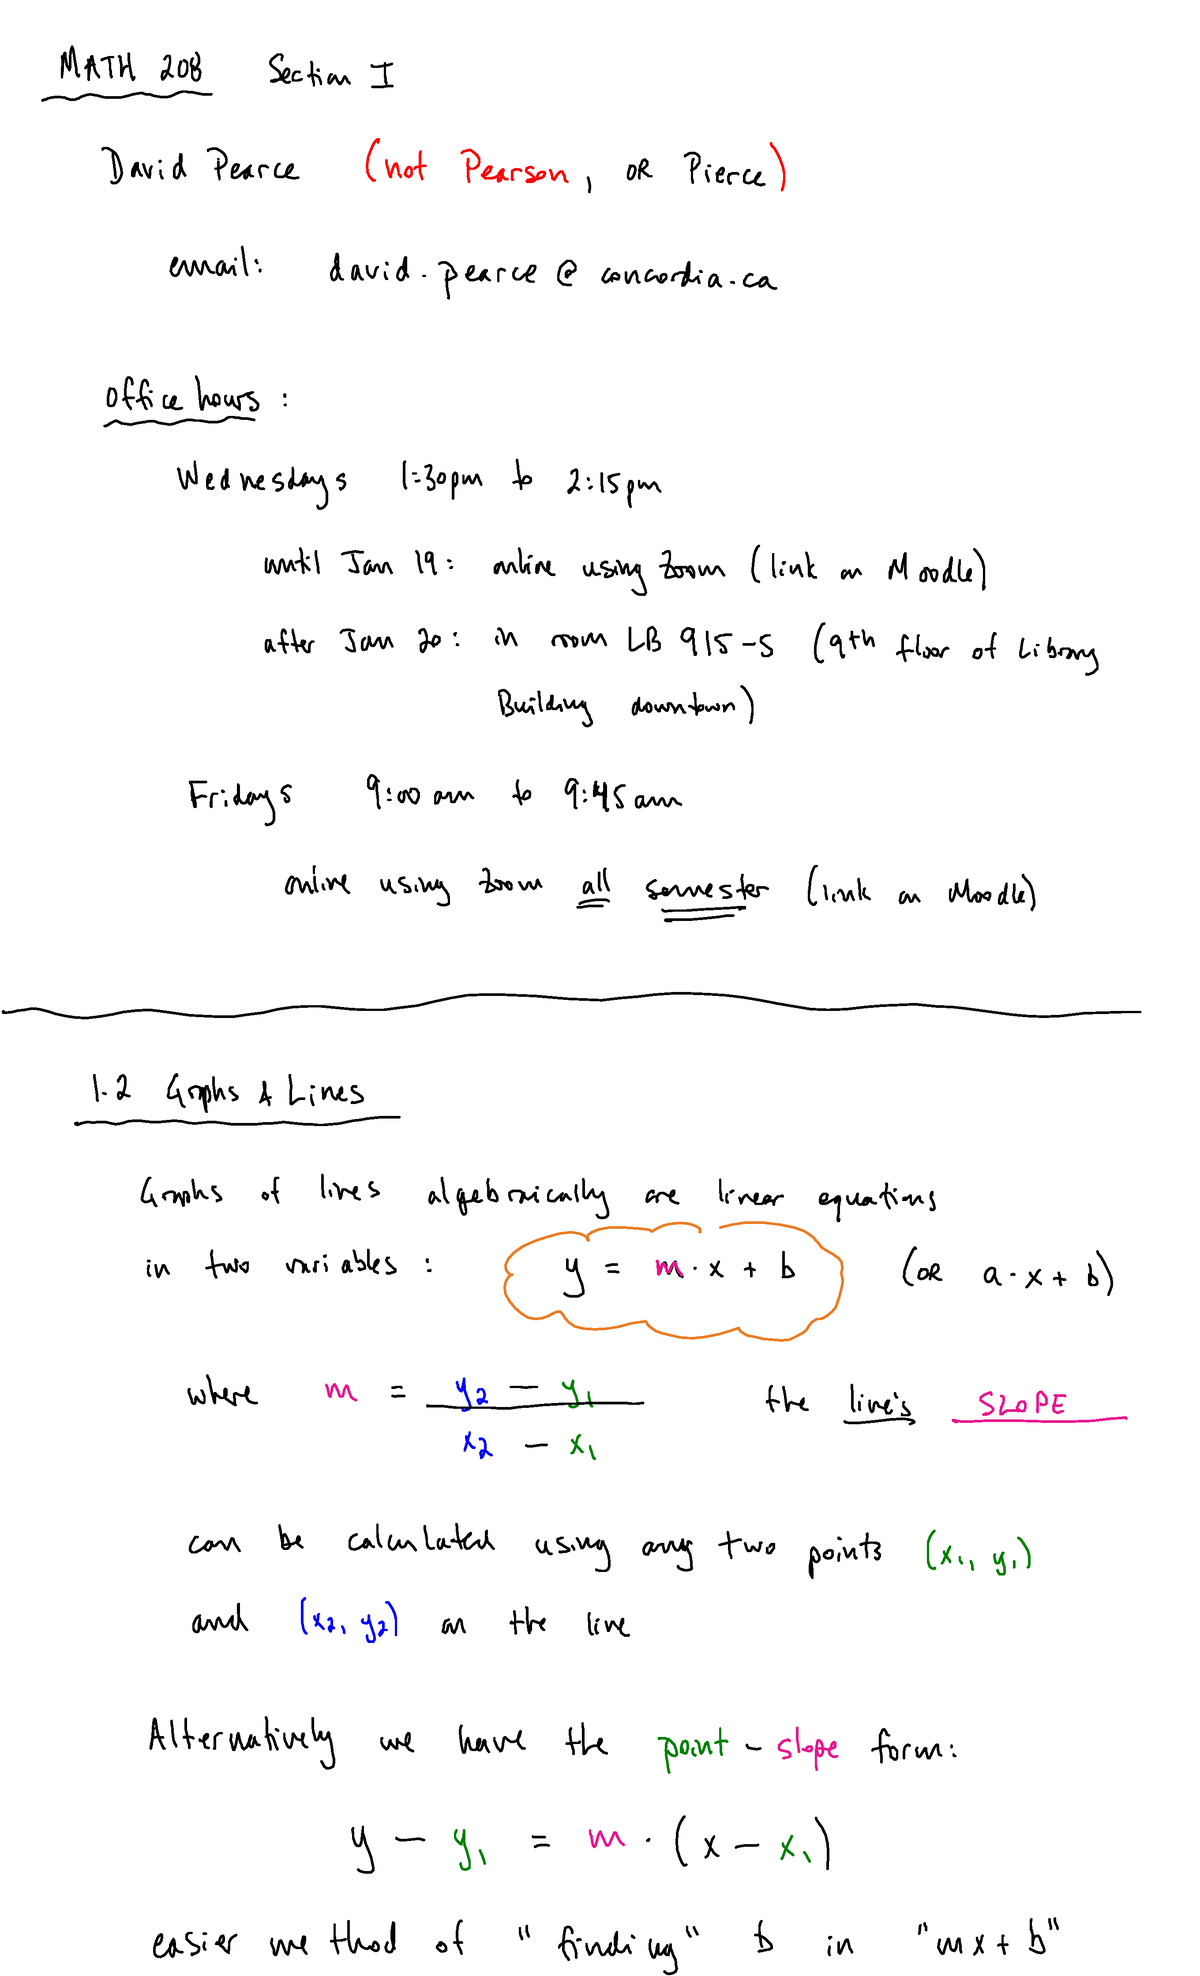 MATH 208 Section I
David Pearce (not Pearson, OR Pierce)
email: david.pearce@concordia.ca
office hours:
Wednesdays 1:30pm to 2:15pm
until Jan 19: online using Zoom (link on Moodle)
after Jan 20: in room LB 915-5 (9th floor of Library
Building downtown)
Fridays 9:00 am to 9:45 am
online using Zoom all semester (link on Moodle)
1.2 Graphs & Lines
Graphs of lines algebraically are linear equations
in two variables: y = m·x + b (OR a·x + b)
where m = (y₂ − y₁)/(x₂ − x₁) the line's SLOPE
can be calculated using any two points (x₁, y₁)
and (x₂, y₂) on the line
Alternatively we have the point-slope form:
y − y₁ = m·(x − x₁)
easier method of "finding" b in "mx + b"